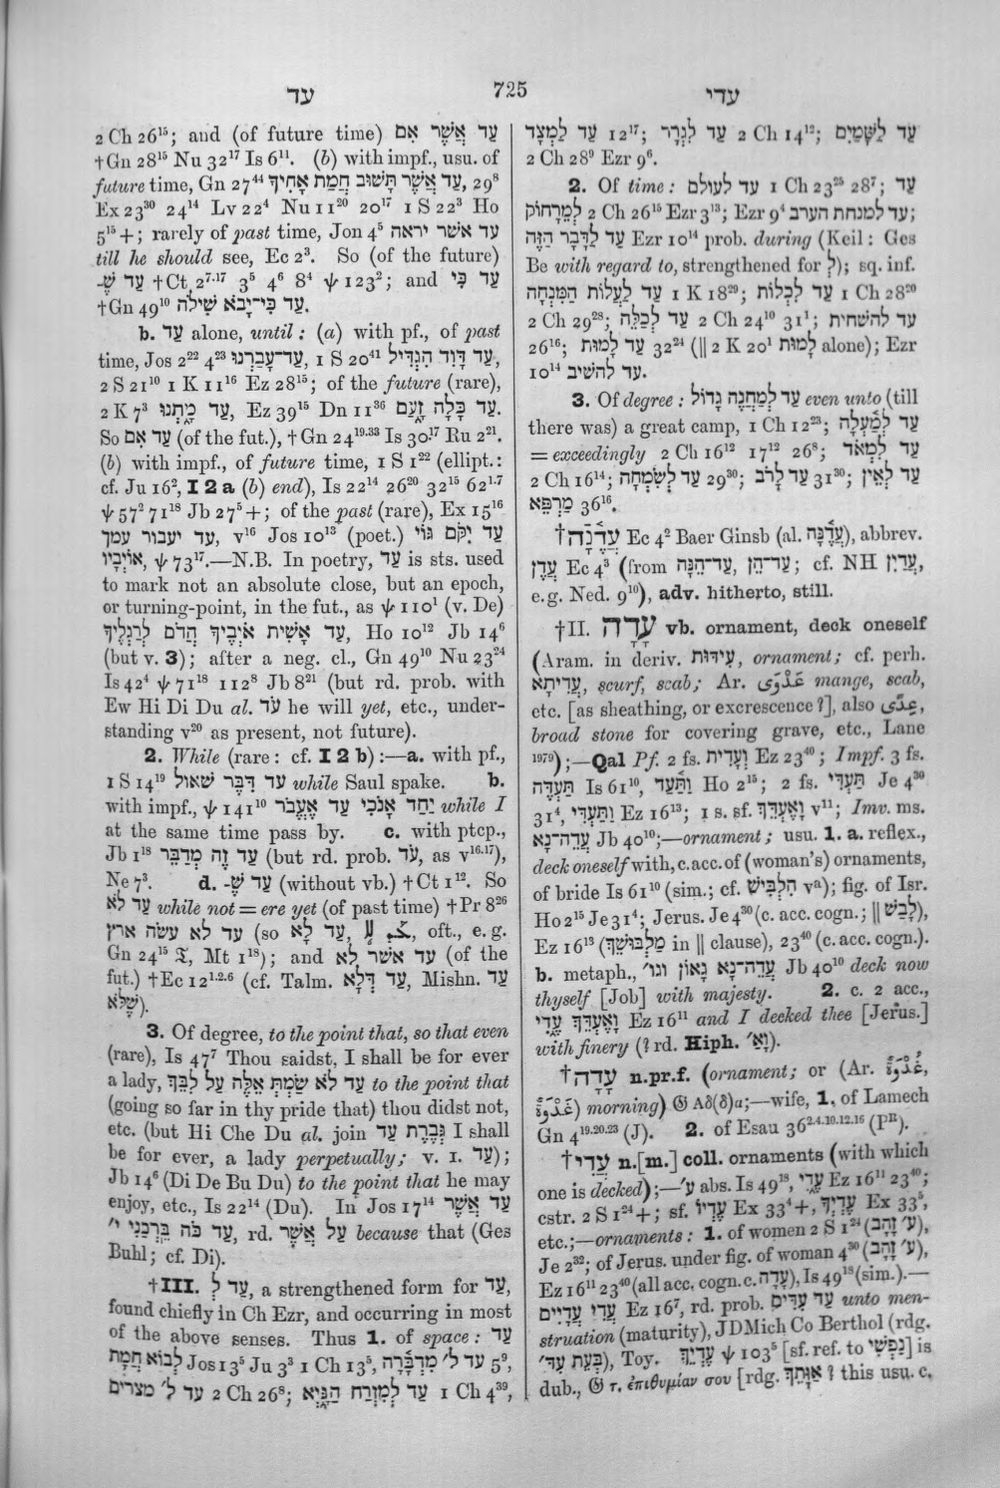 עד
725
עדי
2 Ch 26¹⁵; and (of future time) עַד אֲשֶׁר אִם
†Gn 28¹⁵ Nu 32¹⁷ Is 6¹¹. (b) with impf., usu. of
future time, Gn 27⁴⁴ עַד אֲשֶׁר תָּשׁוּב חֲמַת אָחִיךָ, 29⁸
Ex 23³⁰ 24¹⁴ Lv 22⁴ Nu 11²⁰ 20¹⁷ 1 S 22³ Ho
5¹⁵ +; rarely of past time, Jon 4⁵ עד אשר יראה
till he should see, Ec 2³. So (of the future)
עַד שֶׁ- †Ct 2⁷·¹⁷ 3⁵ 4⁶ 8⁴ ψ 123²; and עַד כִּי
†Gn 49¹⁰ עַד כִּי־יָבֹא שִׁילֹה.
b. עַד alone, until: (a) with pf., of past
time, Jos 2²² 4²³ עַד־עָבְרֵנוּ, 1 S 20⁴¹ עַד דָּוִד הִגְדִּיל,
2 S 21¹⁰ 1 K 11¹⁶ Ez 28¹⁵; of the future (rare),
2 K 7³ עַד מָתְנוּ, Ez 39¹⁵ Dn 11³⁶ עַד כָּלָה זַעַם.
So עַד אִם (of the fut.), †Gn 24¹⁹·³³ Is 30¹⁷ Ru 2²¹.
(b) with impf., of future time, 1 S 1²² (ellipt.:
cf. Ju 16², I 2 a (b) end), Is 22¹⁴ 26²⁰ 32¹⁵ 62¹·⁷
ψ 57² 71¹⁸ Jb 27⁵ +; of the past (rare), Ex 15¹⁶
עד יעבור עמך, v¹⁶ Jos 10¹³ (poet.) עַד יִקֹּם גּוֹי
אֹיְבָיו, ψ 73¹⁷.—N.B. In poetry, עַד is sts. used
to mark not an absolute close, but an epoch,
or turning-point, in the fut., as ψ 110¹ (v. De)
עַד אָשִׁית אֹיְבֶיךָ הֲדֹם לְרַגְלֶיךָ, Ho 10¹² Jb 14⁶
(but v. 3); after a neg. cl., Gn 49¹⁰ Nu 23²⁴
Is 42⁴ ψ 71¹⁸ 112⁸ Jb 8²¹ (but rd. prob. with
Ew Hi Di Du al. עֹד he will yet, etc., under-
standing v²⁰ as present, not future).
2. While (rare: cf. I 2 b):—a. with pf.,
1 S 14¹⁹ עד דִּבֶּר שאול while Saul spake. b.
with impf., ψ 141¹⁰ יַחַד אָנֹכִי עַד אֶעֱבֹר while I
at the same time pass by. c. with ptcp.,
Jb 1¹⁸ עַד זֶה מְדַבֵּר (but rd. prob. עֹד, as v¹⁶·¹⁷),
Ne 7³. d. עַד שֶׁ- (without vb.) †Ct 1¹². So
עַד לֹא while not = ere yet (of past time) †Pr 8²⁶
עד לא עשה ארץ (so עַד לָא, oft., e. g.
Gn 24¹⁵ 𝔗, Mt 1¹⁸); and עד אשר לא (of the
fut.) †Ec 12¹·²·⁶ (cf. Talm. עַד דְּלָא, Mishn. עַד
שֶׁלֹּא).
3. Of degree, to the point that, so that even
(rare), Is 47⁷ Thou saidst, I shall be for ever
a lady, עַד לֹא שַׂמְתְּ אֵלֶּה עַל לִבֵּךְ to the point that
(going so far in thy pride that) thou didst not,
etc. (but Hi Che Du al. join גְּבֶרֶת עַד I shall
be for ever, a lady perpetually; v. 1. עַד);
Jb 14⁶ (Di De Bu Du) to the point that he may
enjoy, etc., Is 22¹⁴ (Du). In Jos 17¹⁴ עַד אֲשֶׁר
עַד כֹּה בֵּרְכַנִי י׳, rd. עַל אֲשֶׁר because that (Ges
Buhl; cf. Di).
†III. עַד לְ, a strengthened form for עַד,
found chiefly in Ch Ezr, and occurring in most
of the above senses. Thus 1. of space: עַד
לְבוֹא חֲמָת Jos 13⁵ Ju 3³ 1 Ch 13⁵, עַד ל׳ מִדְבָּרָה 5⁹,
עד ל׳ מצרים 2 Ch 26⁸; עַד לְמִזְרַח הַגַּיְא 1 Ch 4³⁹,
עַד לַמְצָד 12¹⁷; עַד לִגְרָר 2 Ch 14¹²; עַד לַשָּׁמַיִם
2 Ch 28⁹ Ezr 9⁶.
2. Of time: עד לעולם 1 Ch 23²⁵ 28⁷; עַד
לְמֵרָחוֹק 2 Ch 26¹⁵ Ezr 3¹³; Ezr 9⁴ עד למנחת הערב;
עַד לַדָּבָר הַזֶּה Ezr 10¹⁴ prob. during (Keil: Ges
Be with regard to, strengthened for לְ); sq. inf.
עַד לַעֲלוֹת הַמִּנְחָה 1 K 18²⁹; עַד לְכַלּוֹת 1 Ch 28²⁰
2 Ch 29²⁸; עַד לְכַלֵּה 2 Ch 24¹⁰ 31¹; עד להשחית
26¹⁶; עַד לָמוּת 32²⁴ (‖ 2 K 20¹ לָמוּת alone); Ezr
10¹⁴ עד להשיב.
3. Of degree: עַד לְמַחֲנֶה גָדוֹל even unto (till
there was) a great camp, 1 Ch 12²³; עַד לְמַעְלָה
= exceedingly 2 Ch 16¹² 17¹² 26⁸; עַד לִמְאֹד
2 Ch 16¹⁴; עַד לְשִׂמְחָה 29³⁰; עַד לָרֹב 31³⁰; עַד לְאֵין
מַרְפֵּא 36¹⁶.
†עֲדֶנָה Ec 4² Baer Ginsb (al. עֲדֶנָּה), abbrev.
עֲדֶן Ec 4³ (from עַד־הֵן, עַד־הֵנָּה; cf. NH עֲדַיִן,
e.g. Ned. 9¹⁰), adv. hitherto, still.
†II. עָדָה vb. ornament, deck oneself
(Aram. in deriv. עִידוּת, ornament; cf. perh.
עֲדִיתָא, scurf, scab; Ar. mange, scab,
etc. [as sheathing, or excrescence?], also
broad stone for covering grave, etc., Lane
¹⁹⁷⁹);—Qal Pf. 2 fs. וְעָדִית Ez 23⁴⁰; Impf. 3 fs.
תַּעְדֶּה Is 61¹⁰, וַתַּעַד Ho 2¹⁵; 2 fs. תַּעְדִּי Je 4³⁰
31⁴, וַתַּעְדִּי Ez 16¹³; 1 s. sf. וָאֶעְדֵּךְ v¹¹; Imv. ms.
עֲדֵה־נָא Jb 40¹⁰;—ornament; usu. 1. a. reflex.,
deck oneself with, c. acc. of (woman's) ornaments,
of bride Is 61¹⁰ (sim.; cf. הִלְבִּישׁ vᵃ); fig. of Isr.
Ho 2¹⁵ Je 31⁴; Jerus. Je 4³⁰ (c. acc. cogn.; ‖ לָבַשׁ),
Ez 16¹³ (מַלְבּוּשֵׁךְ in ‖ clause), 23⁴⁰ (c. acc. cogn.).
b. metaph., עֲדֵה־נָא גָאוֹן וגו׳ Jb 40¹⁰ deck now
thyself [Job] with majesty. 2. c. 2 acc.,
וָאֶעְדֵּךְ עֶדִי Ez 16¹¹ and I decked thee [Jerus.]
with finery (? rd. Hiph. וָאַ׳).
†עָדָה n.pr.f. (ornament; or (Ar.
morning) 𝔊 Αδ(δ)α;—wife, 1. of Lamech
Gn 4¹⁹·²⁰·²³ (J). 2. of Esau 36²·⁴·¹⁰·¹²·¹⁶ (Pᴿ).
†עֲדִי n.[m.] coll. ornaments (with which
one is decked);—ע׳ abs. Is 49¹⁸, עֶדִי Ez 16¹¹ 23⁴⁰;
cstr. 2 S 1²⁴ +; sf. עֶדְיוֹ Ex 33⁴ +, עֶדְיְךָ Ex 33⁵,
etc.;—ornaments: 1. of women 2 S 1²⁴ (ע׳ זָהָב),
Je 2³²; of Jerus. under fig. of woman 4³⁰ (ע׳ זָהָב),
Ez 16¹¹ 23⁴⁰ (all acc. cogn. c. עָדָה), Is 49¹⁸ (sim.).—
עֲדִי עֲדָיִים Ez 16⁷, rd. prob. עַד עִדִּים unto men-
struation (maturity), JDMich Co Berthol (rdg.
בְּעֵת עִדִּ׳), Toy. עֶדְיֵךְ ψ 103⁵ [sf. ref. to נַפְשִׁי] is
dub., 𝔊 τ. ἐπιθυμίαν σου [rdg. אַוָּתֵךְ? this usu. c.